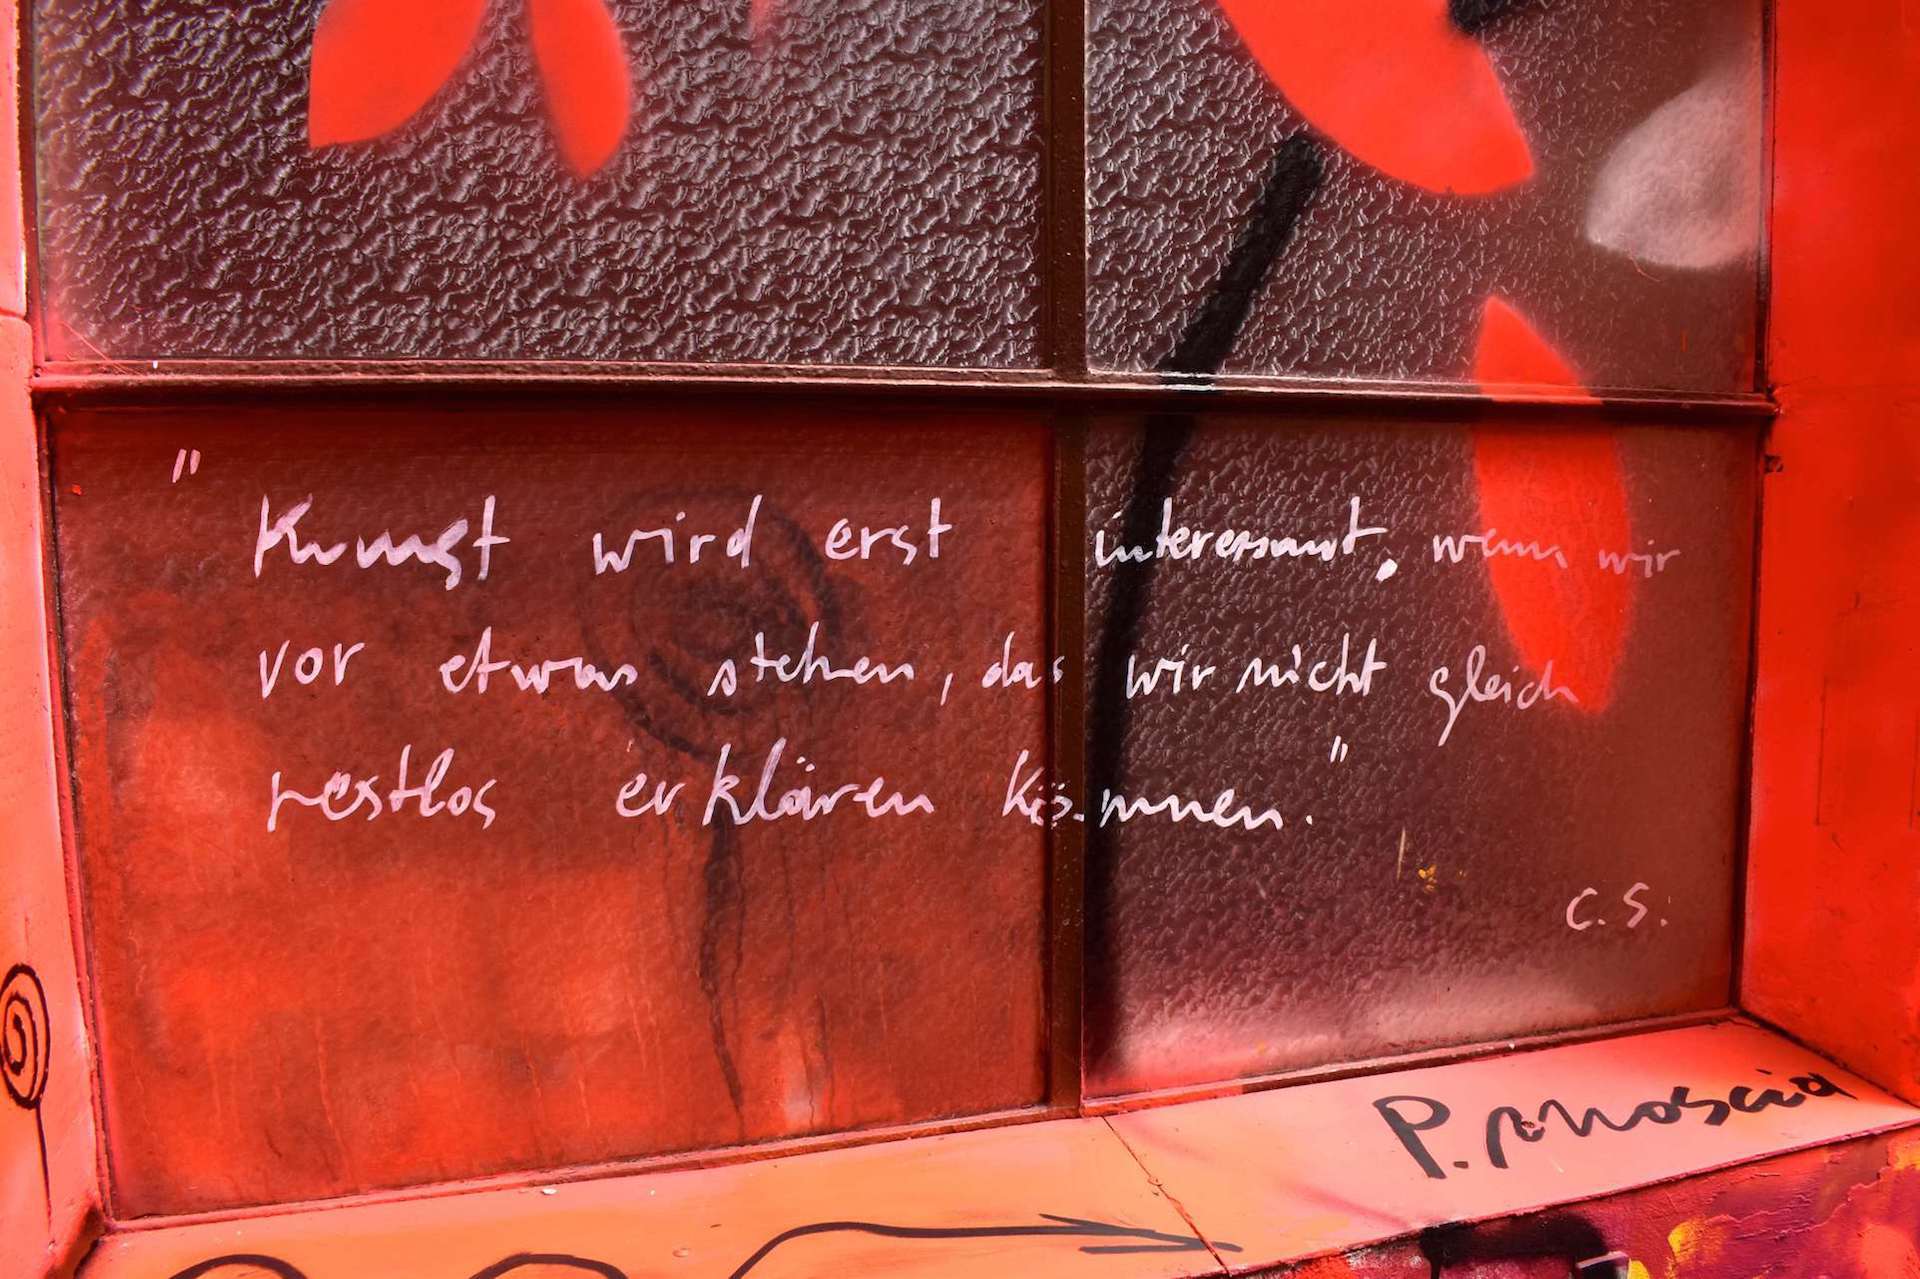 "Kunst wird erst interessant, wenn wir
vor etwas stehen, das wir nicht gleich
restlos erklären können."
C. S.
P. Moscia